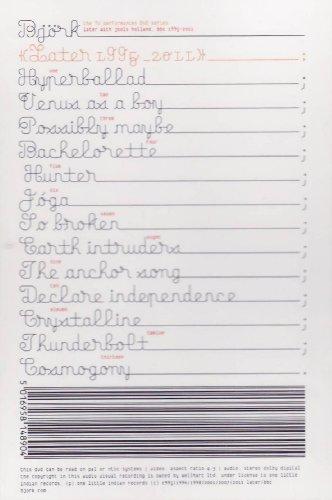 Björk the TV performances DVD series
later with jools holland. bbc 1995-2011
Later 1995_2011 :
one
Hyperballad ;
two
Venus as a boy ;
three
Possibly maybe ;
four
Bachelorette ;
five
Hunter ;
six
Jóga ;
seven
So broken ;
eight
Earth intruders ;
nine
The anchor song ;
ten
Declare independence ;
eleven
Crystalline ;
twelve
Thunderbolt ;
thirteen
Cosmogony ;
5 016958 148904
this dvd can be read on pal or ntsc systems | video aspect ratio 4:3 | audio stereo dolby digital
in this audio visual recording is owned by wellhart ltd under license to one little
indian records (p) one little indian records (c) later/bbc
bjork.com